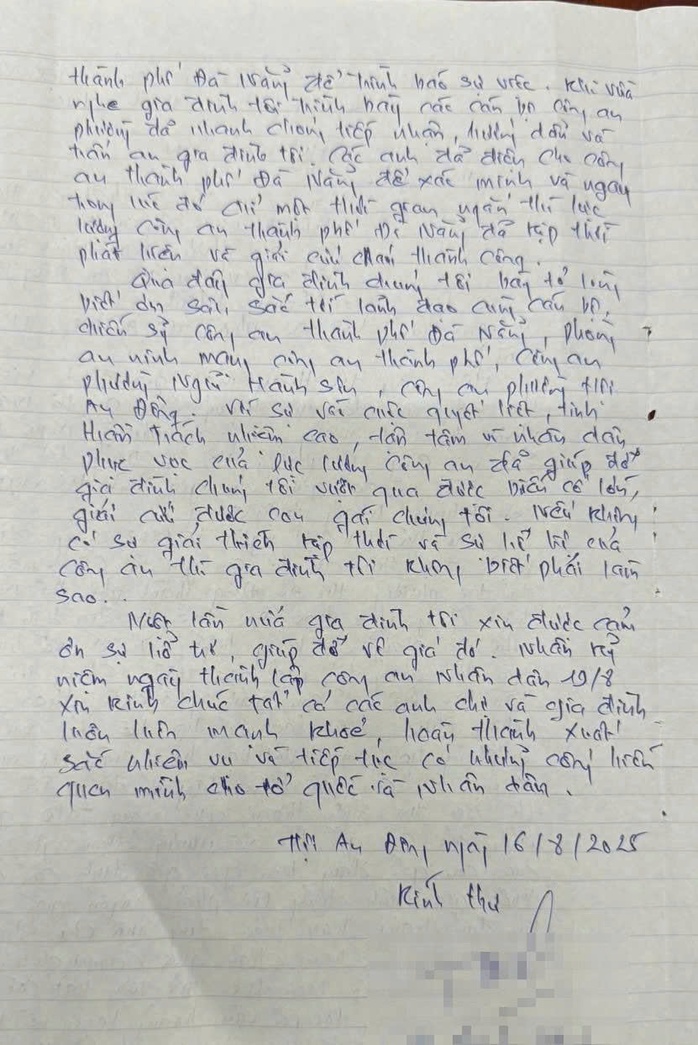 thành phố Đà Nẵng để trình báo sự việc. Khi vừa
nghe gia đình tôi trình bày các cán bộ công an
phường đã nhanh chóng tiếp nhận, hướng dẩn và
trấn an gia đình tôi. Các anh đã điện cho công
an thành phố Đà Nẵng để xác minh và ngay
trong lúc đó chỉ một thời gian ngắn thì lực
lượng công an thành phố Đà Nẵng đã kịp thời
phát hiện và giải cứu cháu thành công.
Qua đây gia đình chúng tôi bày tỏ lòng
biết ơn sâu sắc tới lãnh đạo cùng cán bộ,
chiến sỹ công an thành phố Đà Nẵng, phòng
an ninh mạng công an thành phố, công an
phường Ngũ Hành Sơn, công an phường Hội
An Đông. Với sự vào cuộc quyết liệt, tinh
thần trách nhiệm cao, tận tâm vì nhân dân
phục vụ của lực lượng công an đã giúp đỡ
gia đình chúng tôi vượt qua được biến cố lớn,
giải cứu được con gái chúng tôi. Nếu không
có sự giải thích kịp thời và sự hổ trợ của
công an thì gia đình tôi không biết phải làm
sao...
Một lần nữa gia đình tôi xin được cảm
ơn sự hổ trợ, giúp đỡ vô giá đó. Nhân kỷ
niệm ngày thành lập công an nhân dân 19/8
xin kính chúc tất cả các anh chị và gia đình
luôn luôn mạnh khoẻ, hoàn thành xuất
sắc nhiệm vụ và tiếp tục có những cống hiến
quên mình cho tổ quốc và nhân dân.
Hội An Đông, ngày 16/8/2025
Kính thư